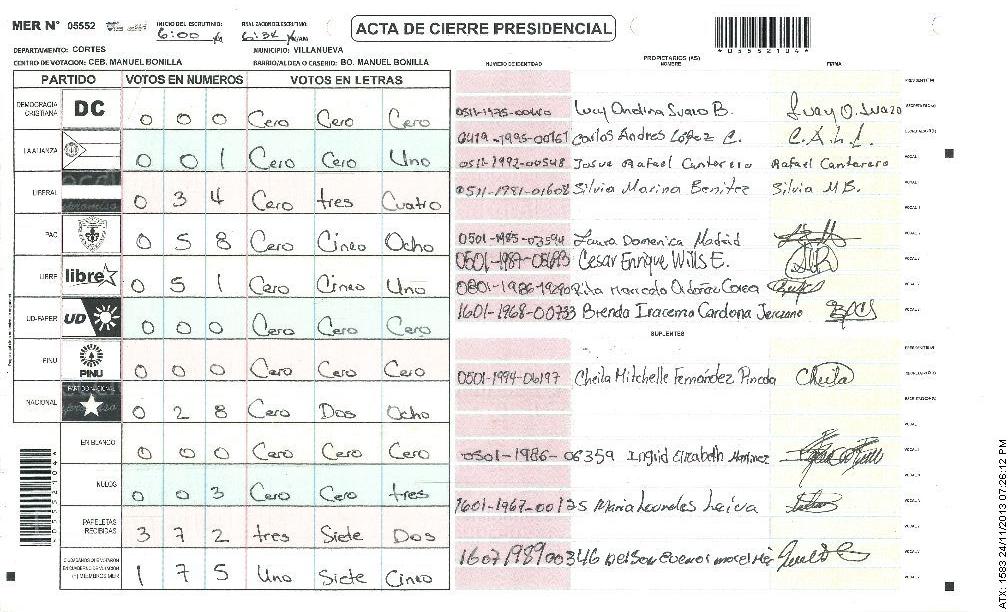 MER N° 05552 INICIO DEL ESCRUTINIO: 6:00 FINALIZACION DEL ESCRUTINIO: 6:34 ACTA DE CIERRE PRESIDENCIAL
*05552104*
DEPARTAMENTO: CORTES MUNICIPIO: VILLANUEVA
CENTRO DE VOTACION: CEB. MANUEL BONILLA BARRIO/ALDEA O CASERIO: BO. MANUEL BONILLA
PROPIETARIOS (AS)
NUMERO DE IDENTIDAD NOMBRE FIRMA
PARTIDO VOTOS EN NUMEROS VOTOS EN LETRAS
DEMOCRACIA CRISTIANA DC 0 0 0 Cero Cero Cero
LA ALIANZA 0 0 1 Cero Cero Uno
LIBERAL 0 3 4 Cero tres Cuatro
PAC 0 5 8 Cero Cinco Ocho
LIBRE libre 0 5 1 Cero Cinco Uno
UD-FAPER UD 0 0 0 Cero Cero Cero
PINU PINU 0 0 0 Cero Cero Cero
NACIONAL PARTIDO NACIONAL 0 2 8 Cero Dos Ocho
EN BLANCO 0 0 0 Cero Cero Cero
NULOS 0 0 3 Cero Cero tres
PAPELETAS RECIBIDAS 3 7 2 tres Siete Dos
(*) MIEMBROS MER 1 7 5 Uno Siete Cinco
Lucy Ondina Suazo B. Lucy O. Suazo
Carlos Andres López C. C.A.L.C.
0511-1992-00548 Josue Rafael Cantarero Rafael Cantarero
0511-1981-01608 Silvia Marina Benitez Silvia M B.
0501-1985-03594 Laura Domenica Madrid
0501-1987-05693 Cesar Enrique Wills E.
1601-1968-00733 Brenda Iracema Cardona
SUPLENTES
0501-1994-06197 Cheila Mitchelle Fernández Pineda Cheila
0501-1986-06359 Ingrid Elizabeth Martinez
1601-1967-00125 Maria Lourdes Leiva
1607198900346
*05552104*
ATX: 1583 24/11/2013 07:26:12 PM